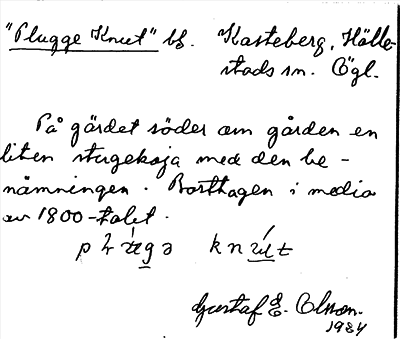 "Plugge Knut" bs. Kasteberg, Hälle-
stads sn. Ögl.
På gärdet söder om gården en
liten stugekoja med den be-
nämningen. Borttagen i media
av 1800-talet.
knut
Gustaf E. Olsson.
1924